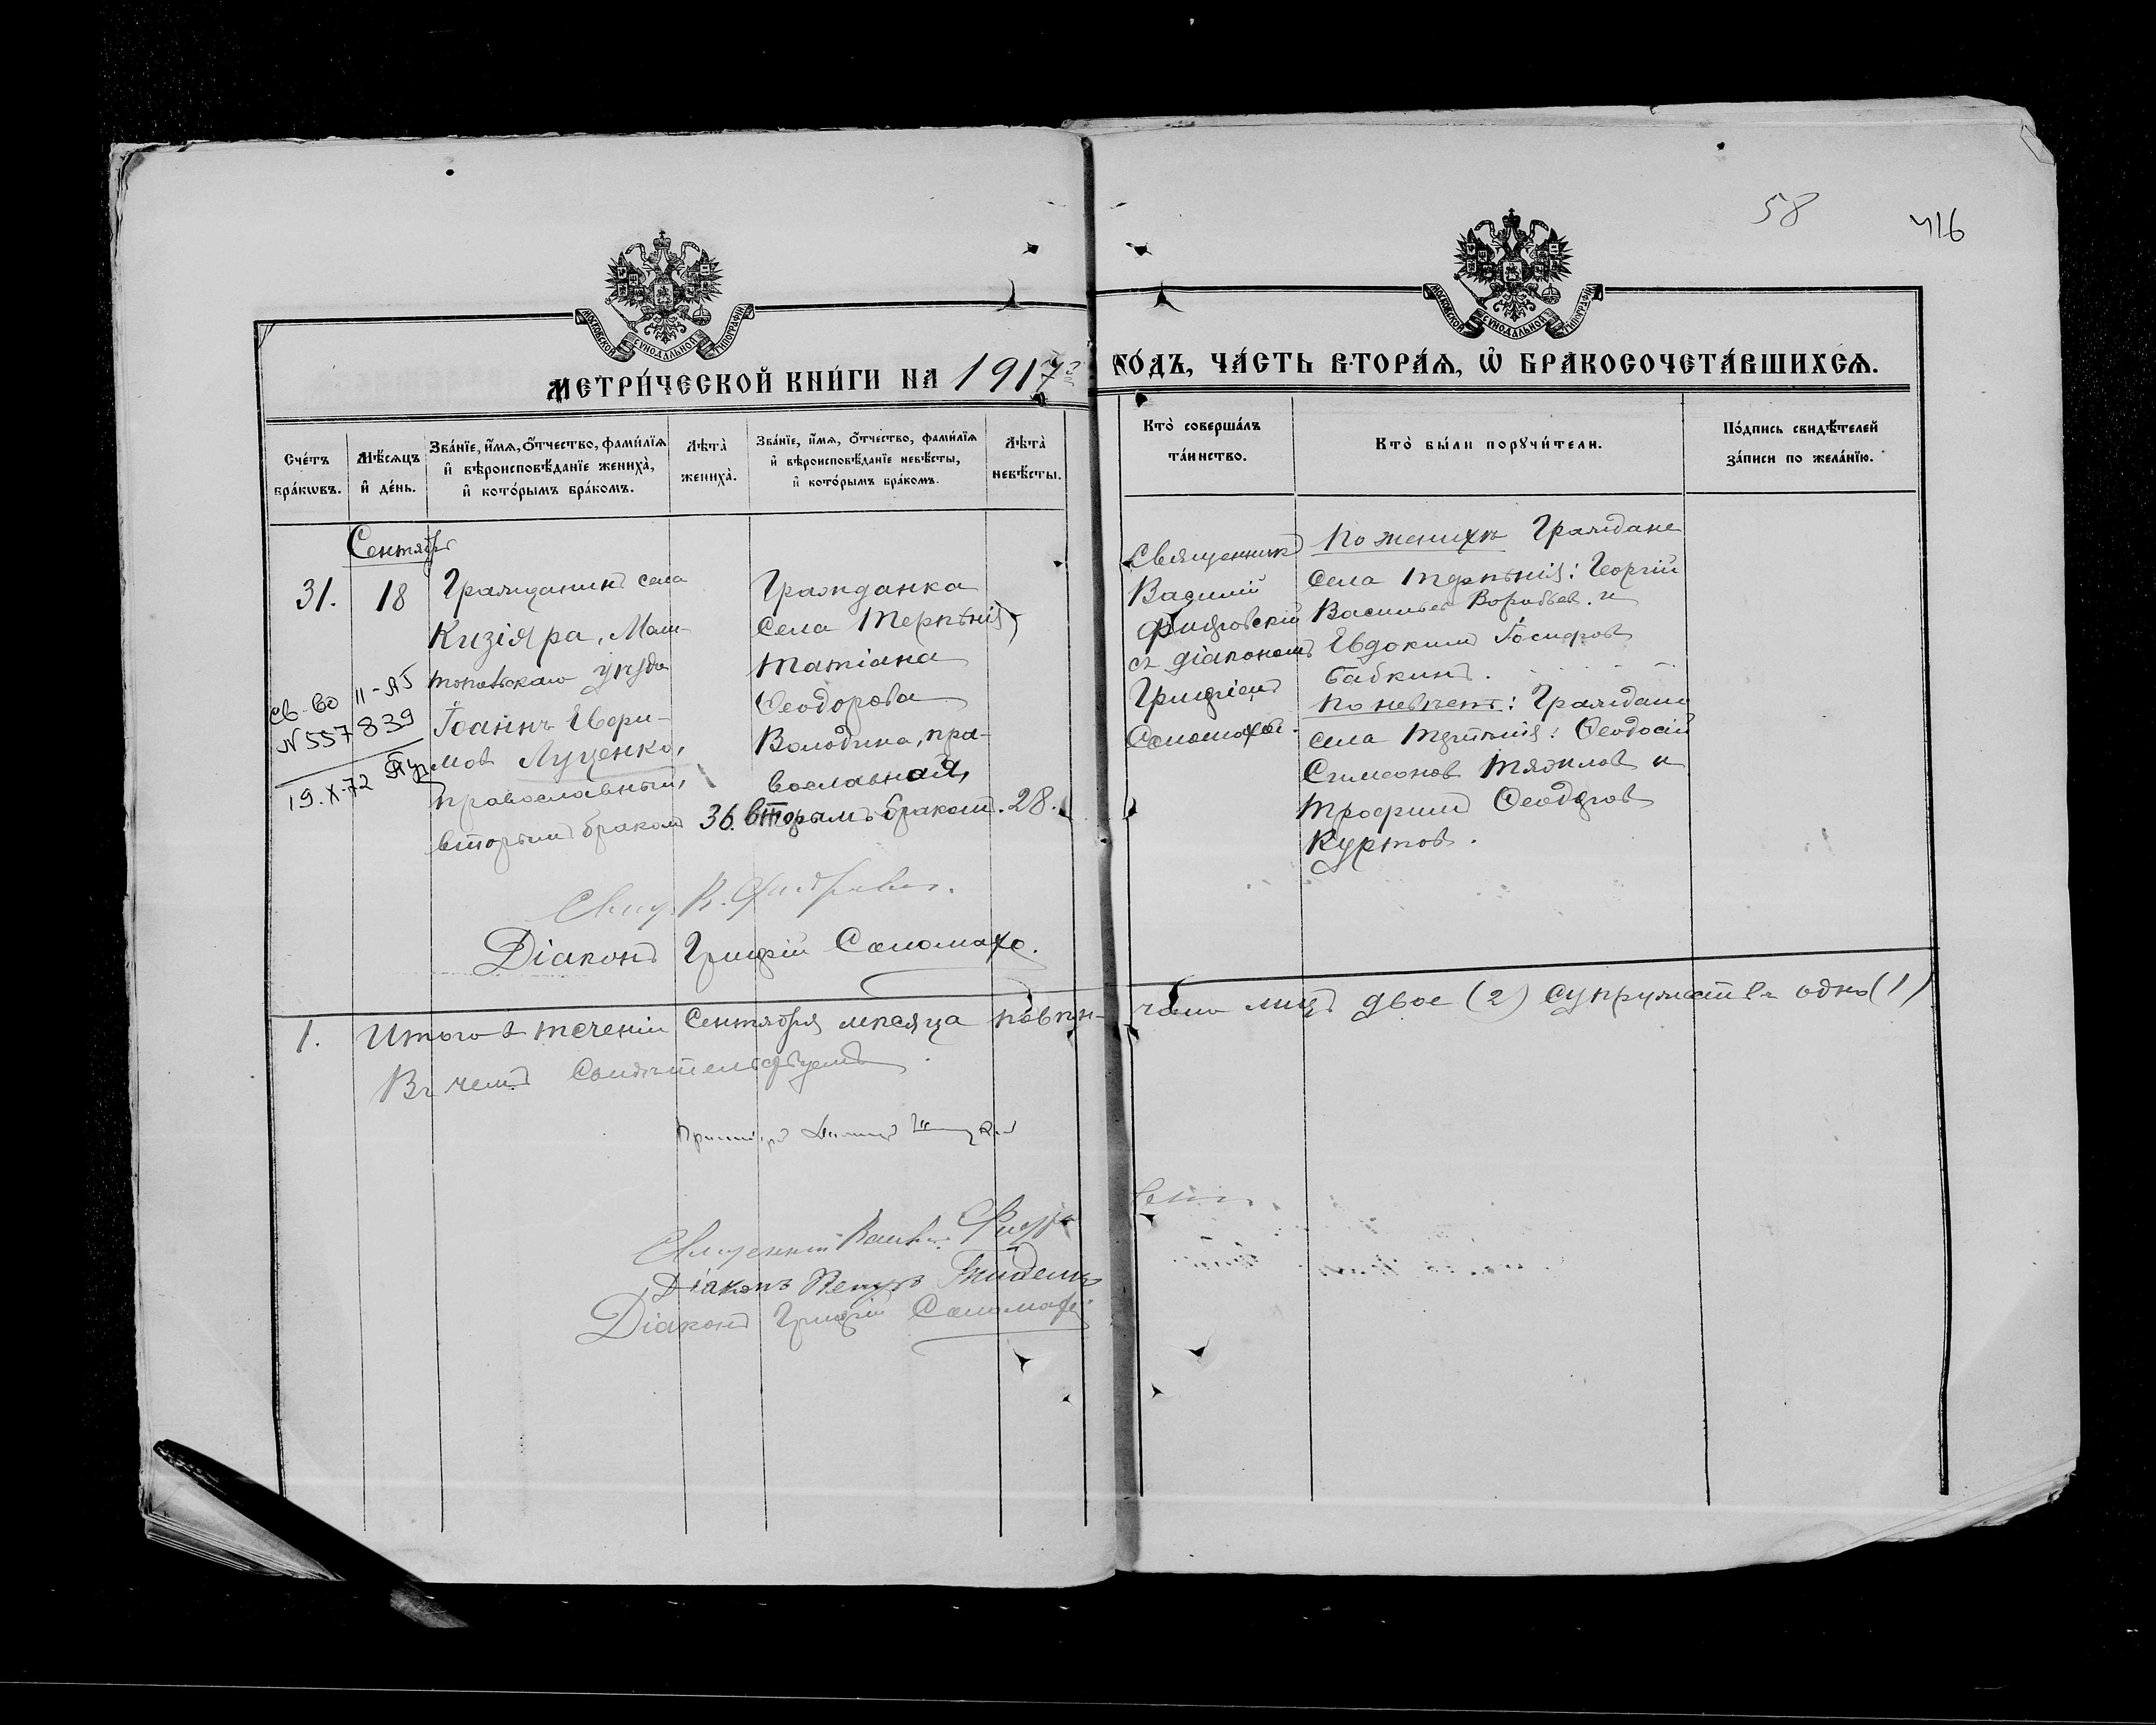 58
416
МОСКОВСКОЙ СѴНОДАЛЬНОЙ ТИПОГРАФІИ
МОСКОВСКОЙ СѴНОДАЛЬНОЙ ТИПОГРАФІИ
МЕТРИ́ЧЕСКОЙ КНИ́ГИ НА 1917й ГО́ДЪ, ЧА́СТЬ ВТОРА́Я, Ѡ БРАКОСОЧЕТА́ВШИХСЯ.
Сче́тъ бра́кωвъ.
Мѣ́сяцъ и҆ де́нь.
Зва́нїе, и҆́мя, ѻ҆́тчество, фами́лїя и҆ вѣроисповѣ́данїе жениха̀, и҆ кото́рымъ бра́комъ.
Лѣ́та̀ жениха̀.
Зва́нїе, и҆́мя, ѻ҆́тчество, фами́лїя и҆ вѣроисповѣ́данїе невѣ́сты, и҆ кото́рымъ бра́комъ.
Лѣ́та̀ невѣ́сты.
Кто̀ соверша́лъ та́инство.
Кто̀ бы́ли порꙋчи́тели.
По́дпись свидѣ́телей за́писи по жела́нїю.
Сентябрь
31.
18
Гражданинъ села
Кизіяра, Мели-
топольскаго уѣзда
Іоаннъ Ефри-
мовъ Луценко,
православный,
вторымъ бракомъ
36.
Гражданка
села Терпѣнія
Татіана
Ѳеодорова
Володина, пра-
вославная,
вторымъ бракомъ.
28.
Св-во II-АП
N 557839
19.X-72
Священникъ
Василій
съ діакономъ
Григоріемъ
Соломахой.
По женихѣ Граждане
села Терпѣнія: Георгій
Васильев Воробьев и
Евдокимъ Іосифовъ
Бабкинъ.
По невѣстѣ: Граждане
села Терпѣнія: Ѳеодосій
Симеоновъ Тяжловъ и
Трофимъ Ѳеодоровъ
Куртовъ.
Свящ. В.
Діаконъ Григорій Соломаха.
1. Итого в теченіи Сентября мѣсяца повѣн- чано лицъ двое (2) супружествъ одно (1)
Въ чемъ свидѣтельствуемъ
Священникъ Василій
Діаконъ Петръ
Діаконъ Григорій Соломаха